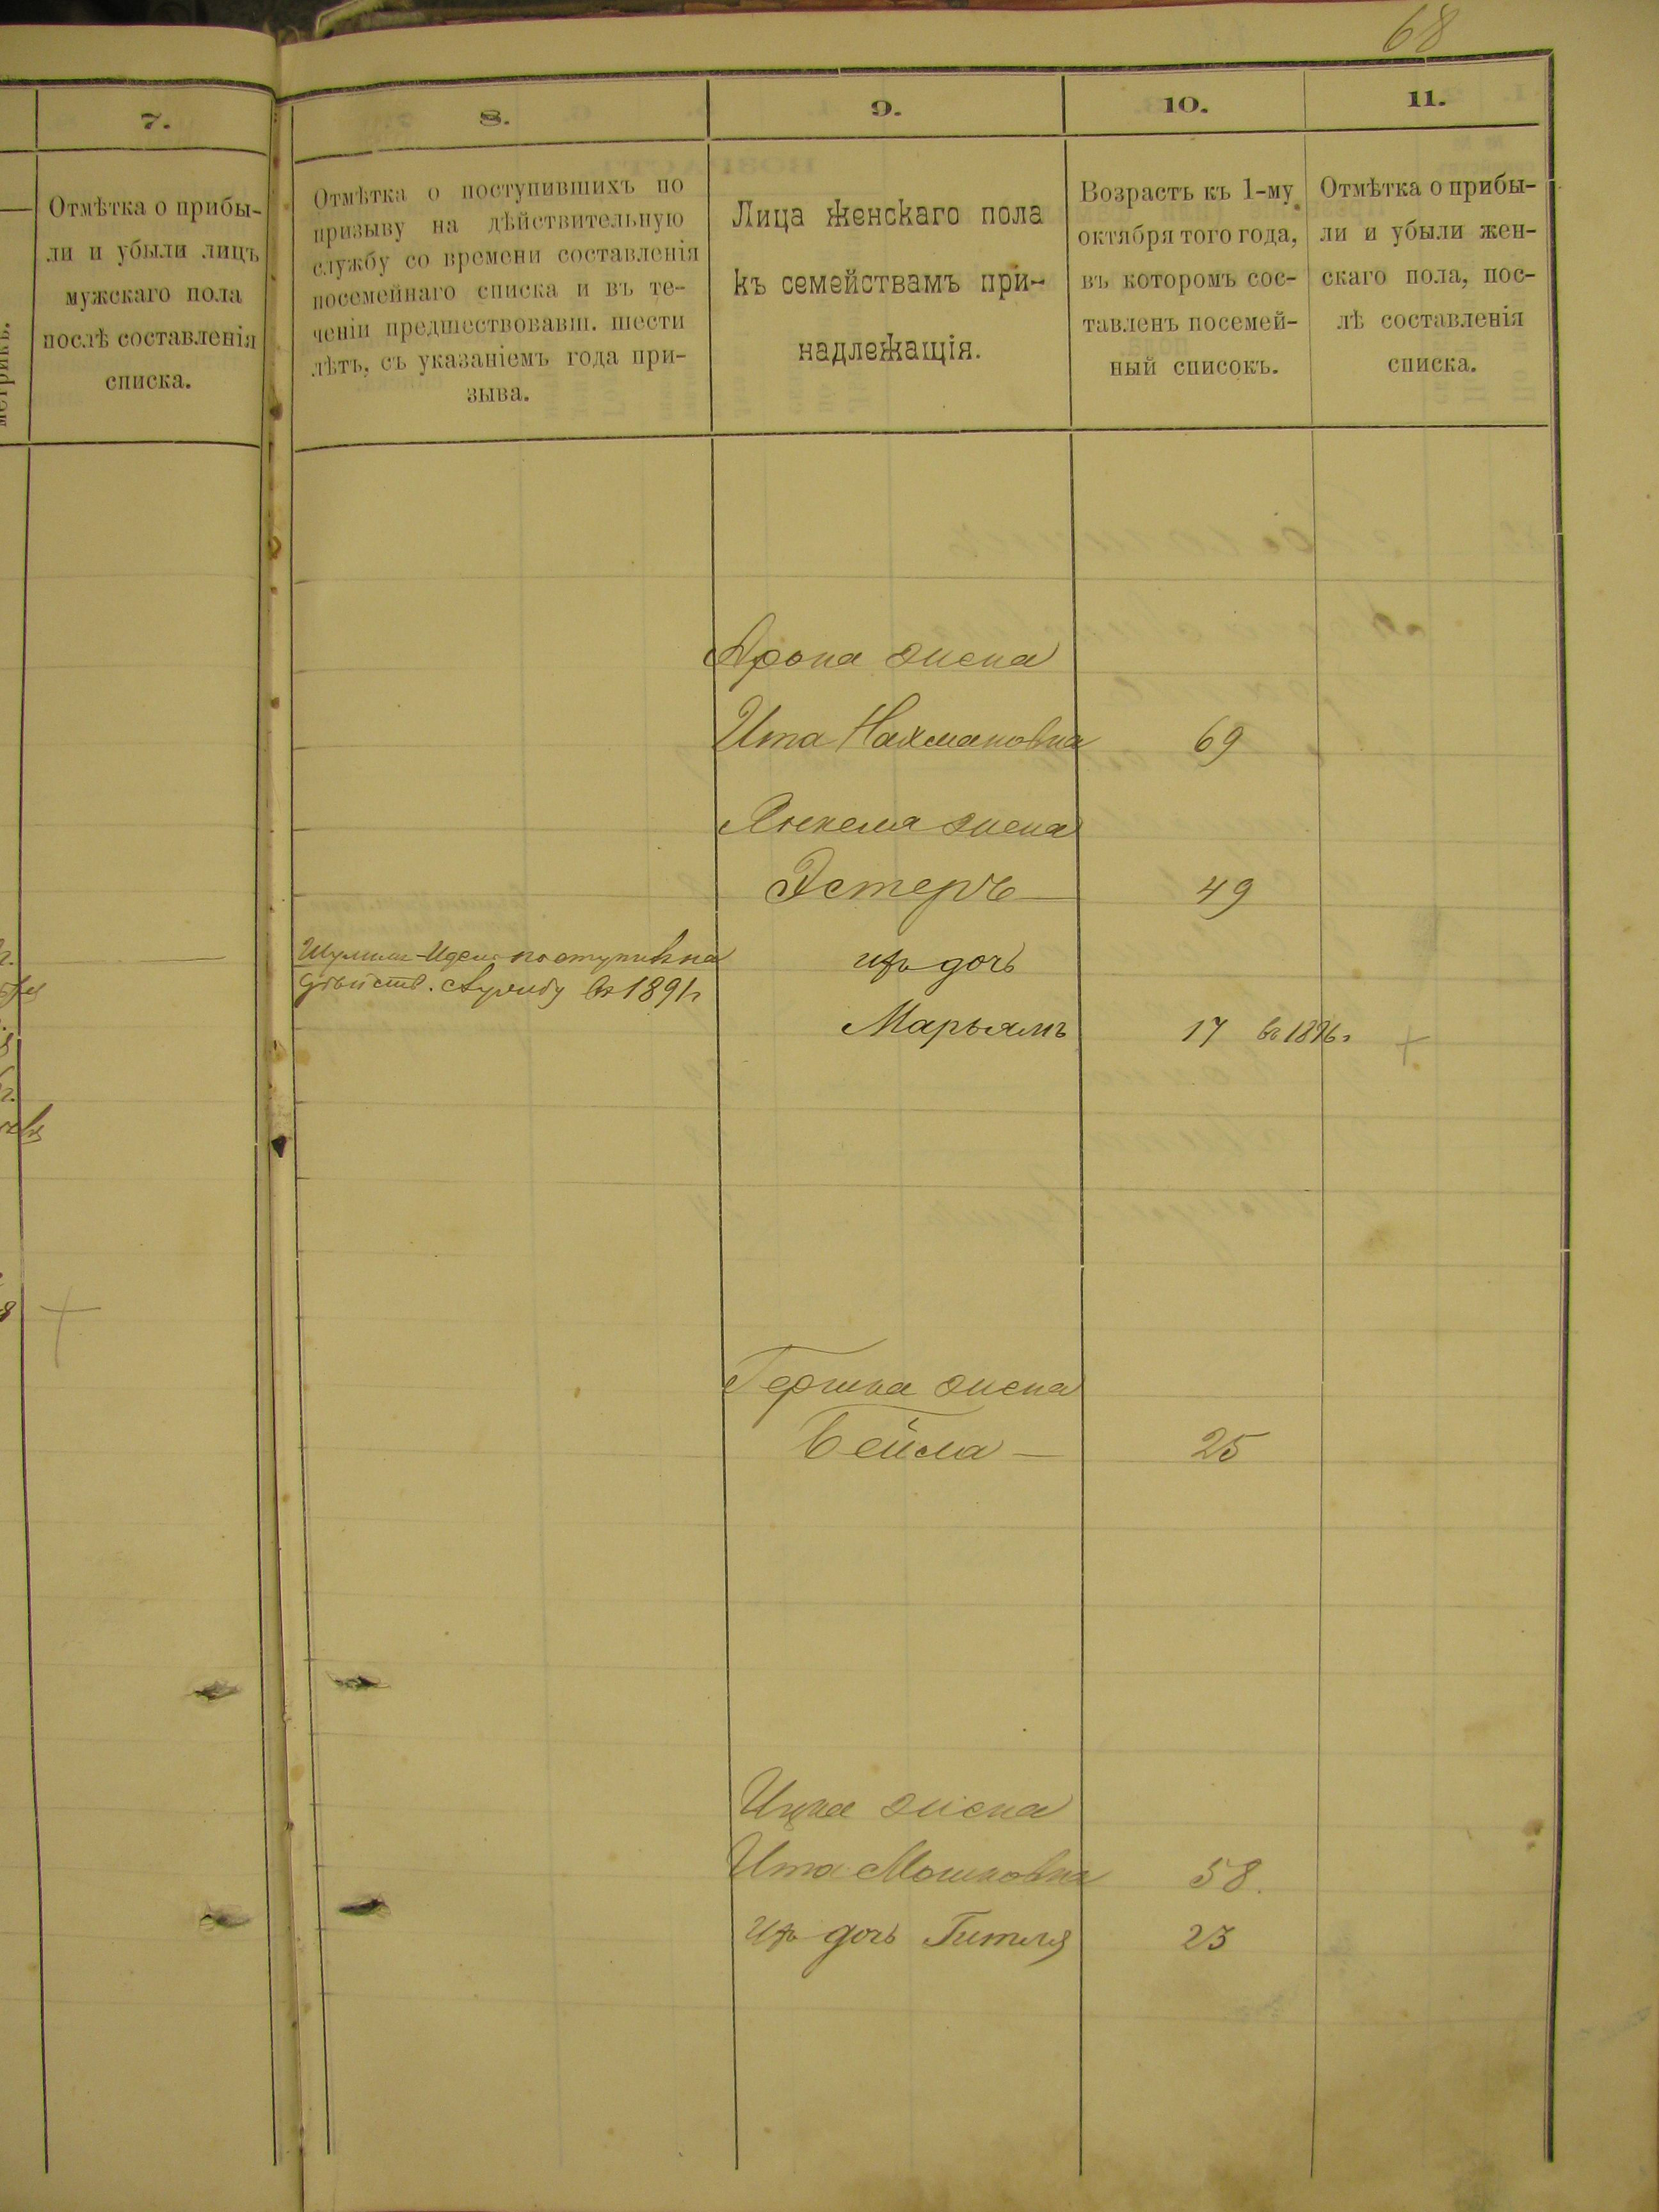 68
7.
8.
9.
10.
11.
Отмѣтка о прибы-
ли и убыли лицъ
мужскаго пола
послѣ составленія
списка.
Отмѣтка о поступившихъ по
призыву на дѣйствительную
службу со времени составленія
посемейнаго списка и въ те-
ченіи предшествовавш. шести
лѣтъ, съ указаніемъ года при-
зыва.
Лица женскаго пола
къ семействамъ при-
надлежащія.
Возрастъ къ 1-му
октября того года,
въ которомъ сос-
тавленъ посемей-
ный списокъ.
Отмѣтка о прибы-
ли и убыли жен-
скаго пола, пос-
лѣ составленія
списка.
Арона жена
Ита Нахмановна 69
Янкеля жена
Эстеръ 49
ихъ дочь
Марьямъ 17 въ 1896г +
поступилъ на
дѣйств. службу въ 1891г
Гершка жена
Бейла 25
Ицка жена
Ита Мошковна 58.
ихъ дочь Гитля 23